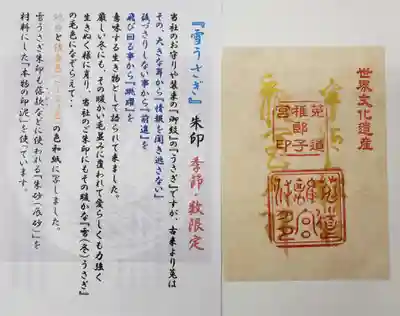 『雪うさぎ』朱印 季節・数限定
当社のお守りや装束の『御紋』の『うさぎ』ですが、古来より兎は
その、大きな耳から『情報を聞き逃さない』
後づさりしない事から『前進』を
飛び回る事から『跳躍』を
意味する生き物として語られて来ました。
厳しい冬にも、その暖かい毛並みに覆われて愛らしくも力強く
生きぬく様に肖り、当社のご朱印にもその暖かな『雪(冬)うさぎ』
の毛色になぞらえて‥
の色和紙に写しました。
雪うさぎ朱印も落款などに使われる『朱砂(辰砂)』を
材料にした『本物の印泥』を使っています。
世界文化遺産
菟道
稚郎子
宮印
菟道
離宮